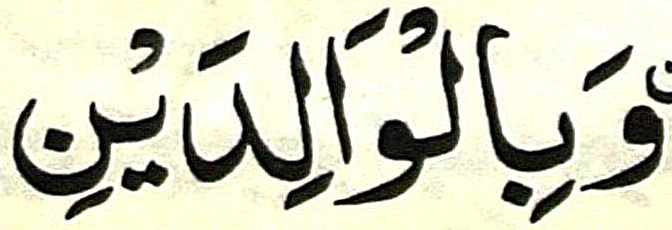 وَبِالْوَالِدَيْنِ